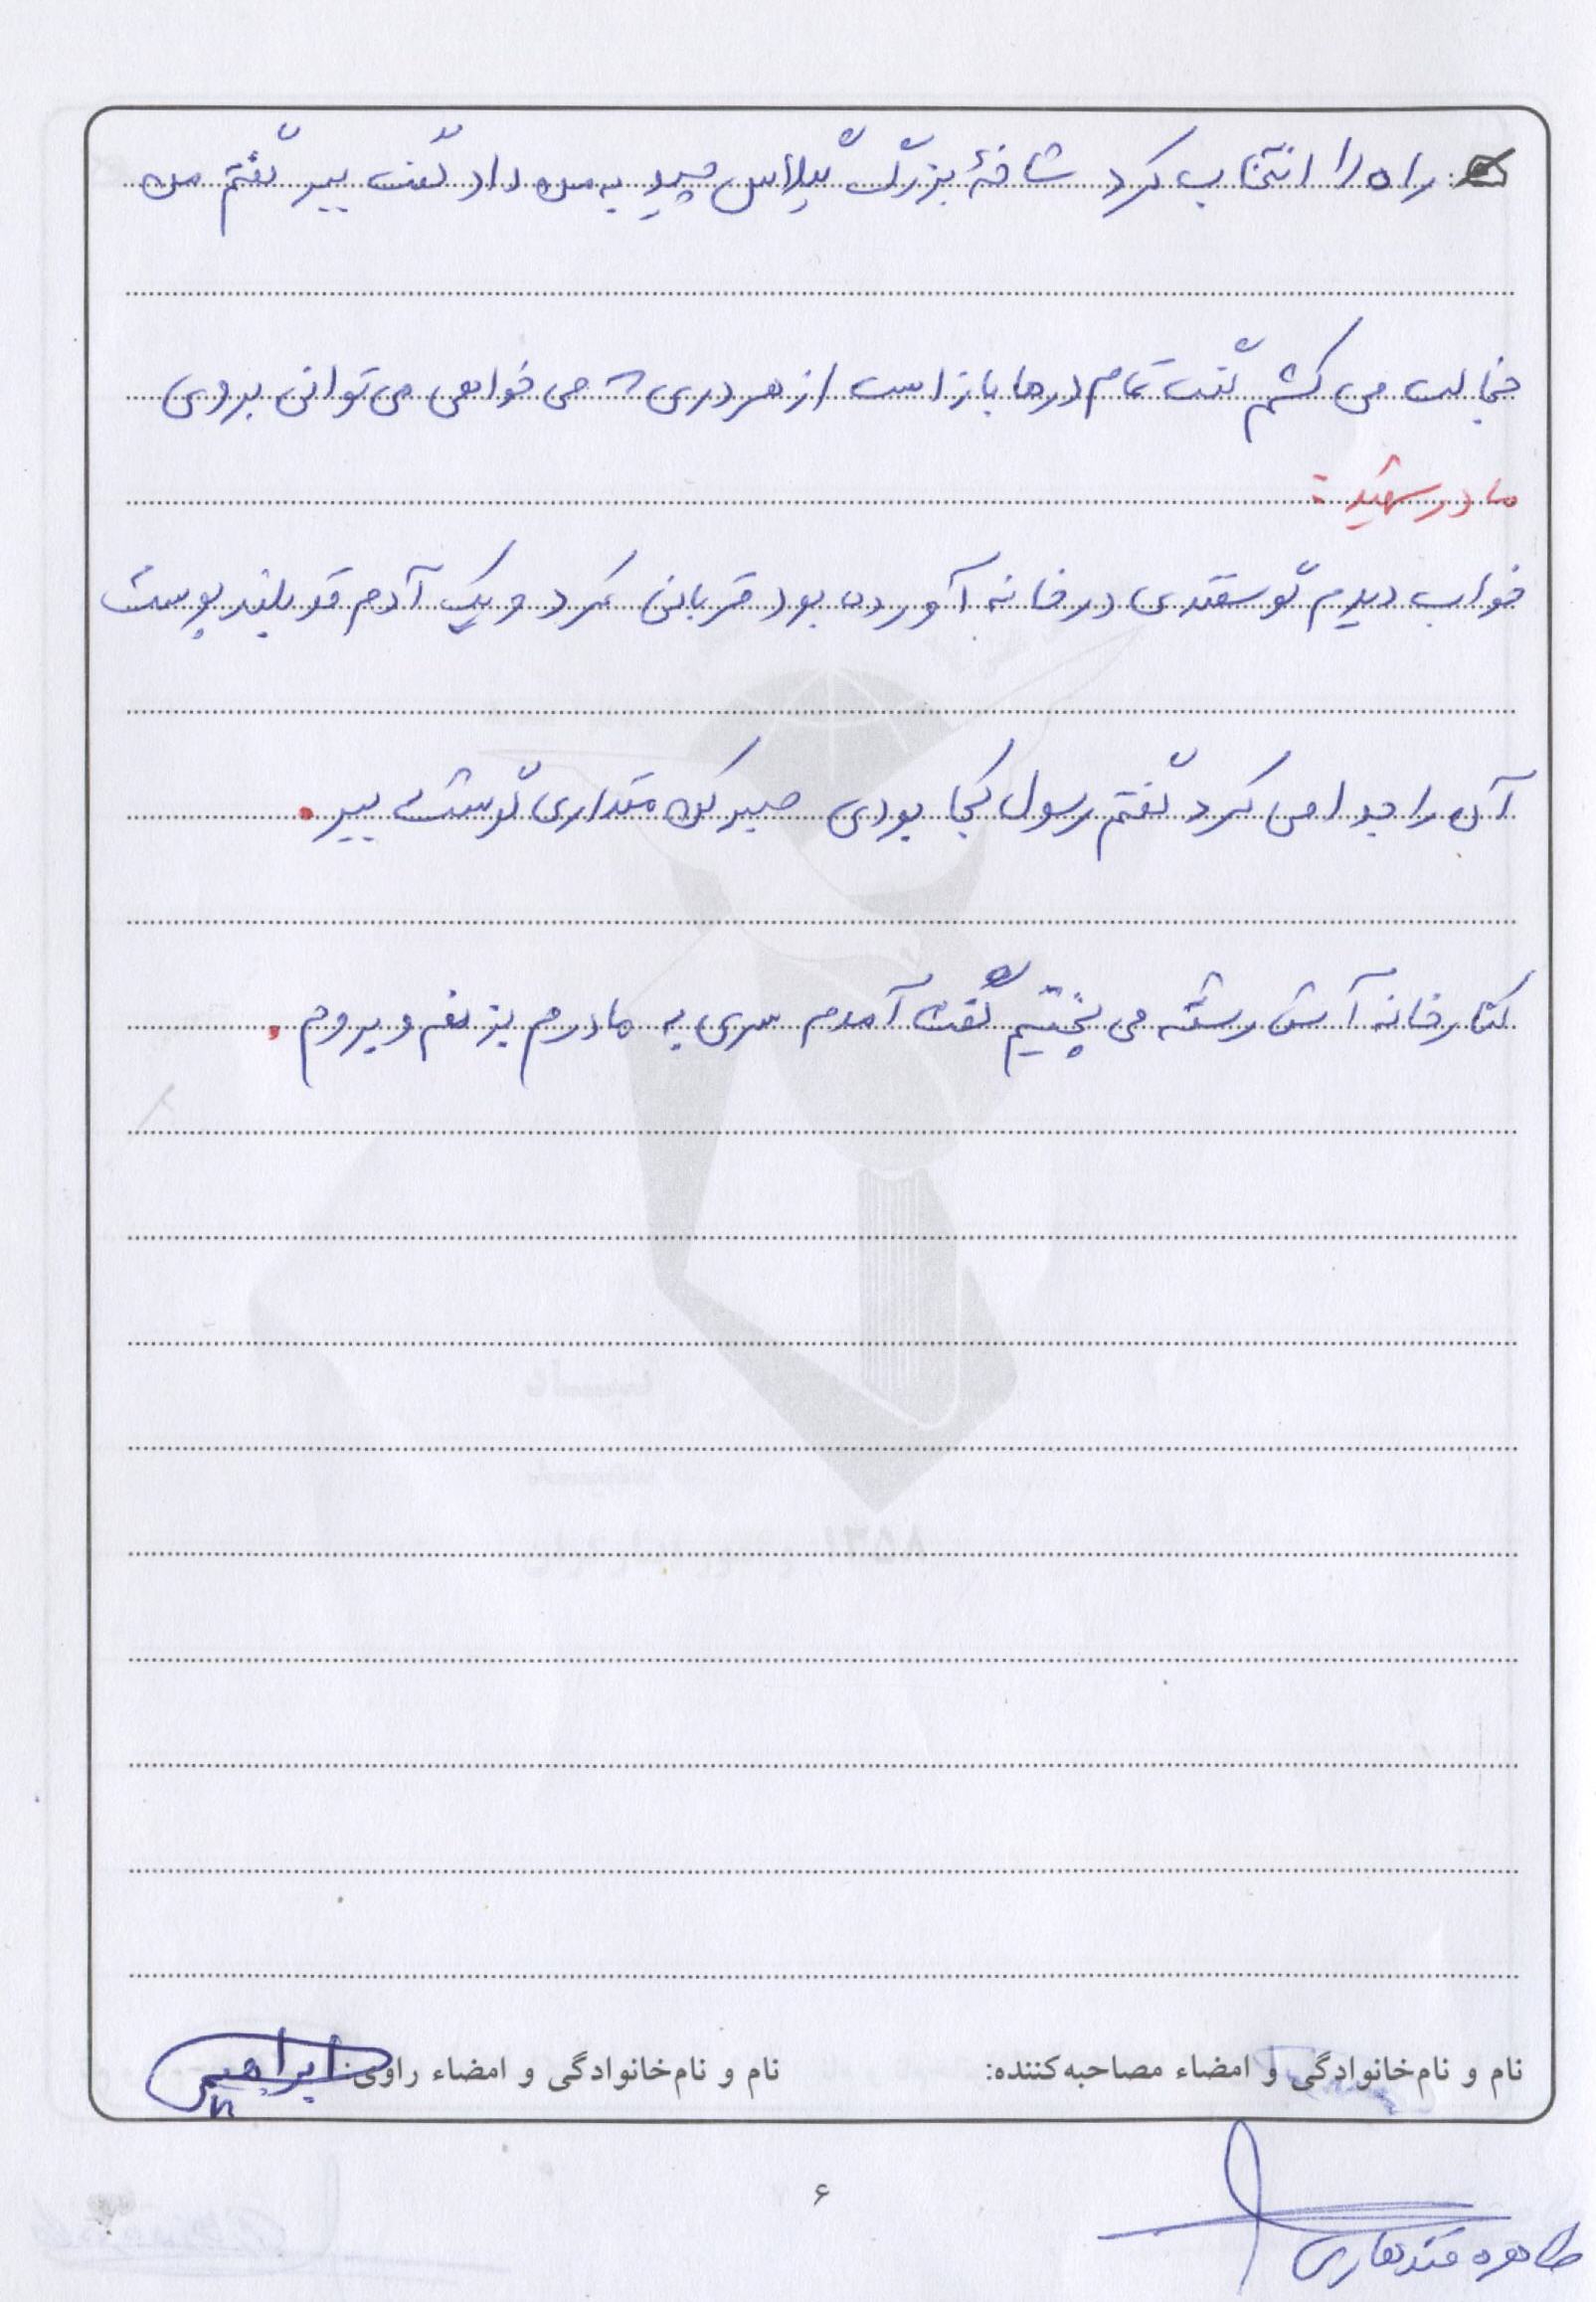 راه را انتخاب کرد شاخهٔ بزرگ گیلاس چید به من داد گفت ببر گفتم من
خجالت می کشم گفت تمام درها باز است از هر دری که می خواهی می توانی بروی
مادر شهید:
خواب دیدم گوسفندی در خانه آورده بود قربانی کرد و یک آدم قد بلند پوست
آن را جدا می کرد گفتم رسول کجا بودی صبر کن مقداری گوشت ببر.
کنار خانه آش رشته می پختیم گفت آمدم سری به مادرم بزنم و بروم.
نام و نام‌خانوادگی و امضاء مصاحبه‌کننده: نام و نام‌خانوادگی و امضاء راوی: ابراهیمی
۶
طاهره قندهاری